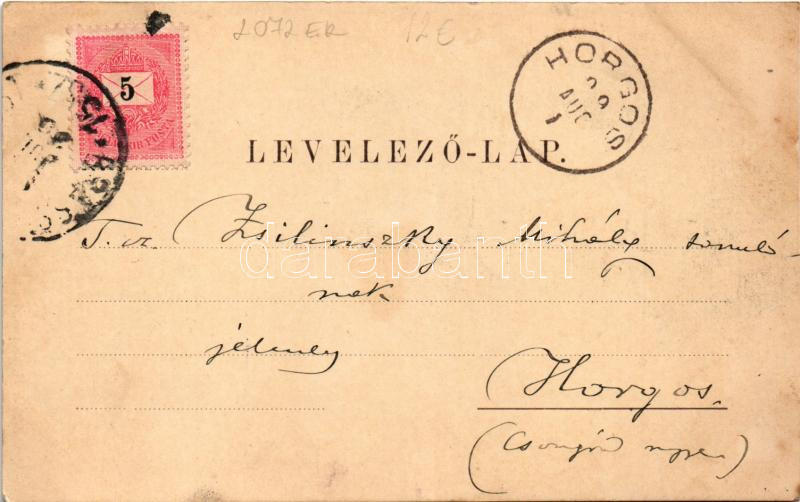 2072 ER 12 E
5
HORGOS
99
AUG
1
LEVELEZŐ-LAP.
T. cz. Zsilinszky Mihály tanuló-
nak
darabanth
jelenleg
Horgos.
(Csongrád megye)